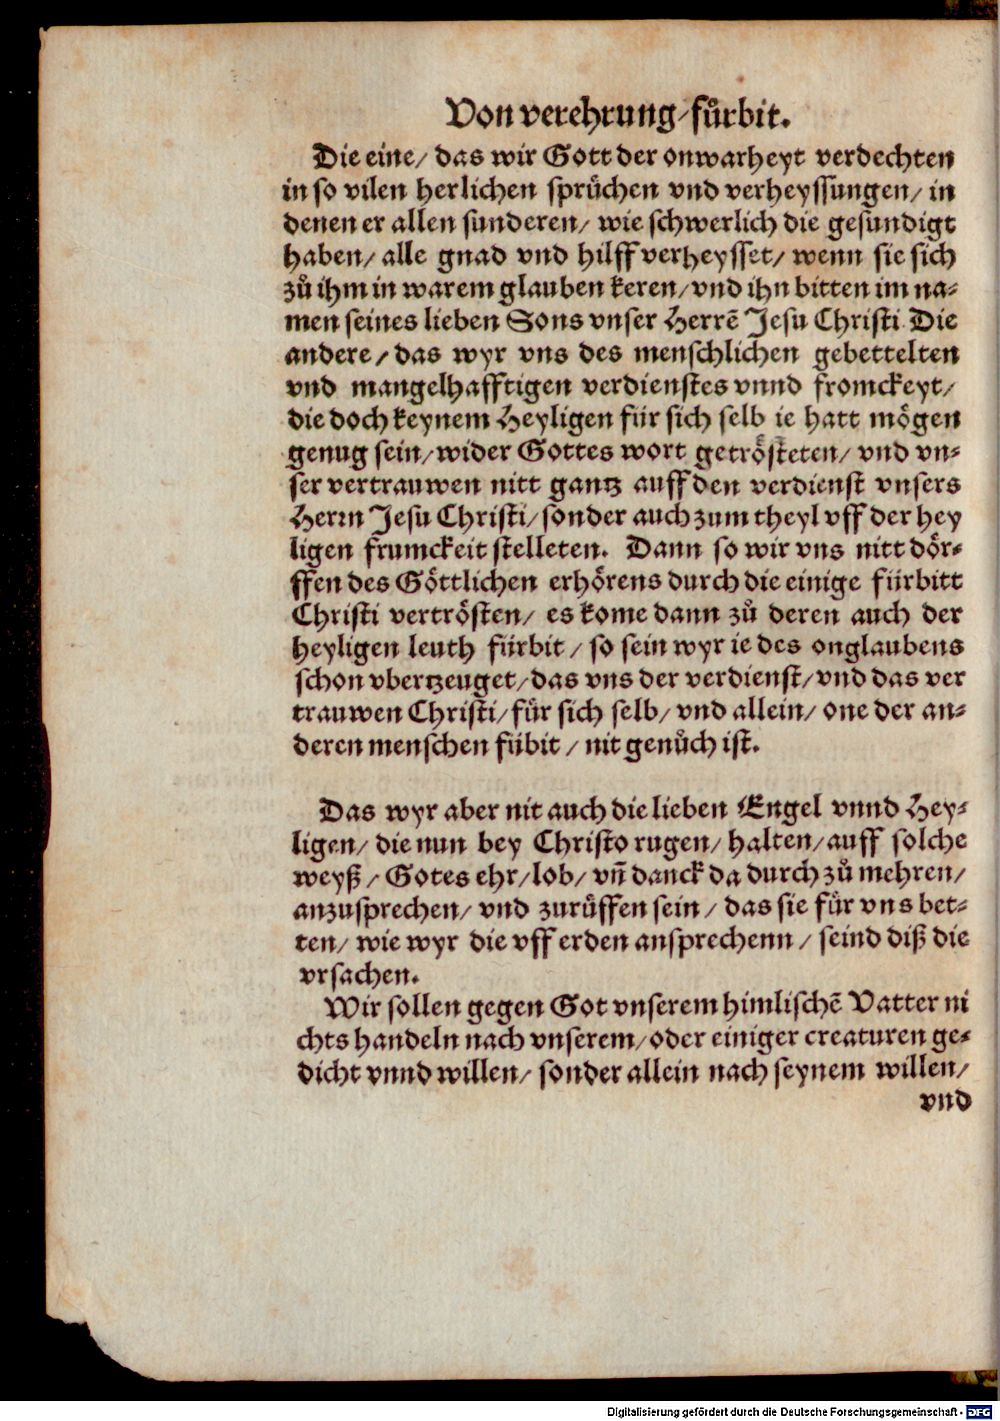 Von verehrung/fůrbit.
Die eine/ das wir Gott der onwarheyt verdechten
in so vilen herlichen sprüchen vnd verheyssungen/ in
denen er allen sunderen/ wie schwerlich die gesundigt
haben/ alle gnad vnd hilff verheysset/ wenn sie sich
zů ihm in warem glauben keren/ vnd ihn bitten im na-
men seines lieben Sons vnser Herrē Jesu Christi Die
andere/ das wyr vns des menschlichen gebettelten
vnd mangelhafftigen verdienstes vnnd fromckeyt/
die doch keynem Heyligen für sich selb ie hatt mögen
genug sein/ wider Gottes wort getrösteten/ vnd vn-
ser vertrauwen nitt gantz auff den verdienst vnsers
Herrn Jesu Christi/ sonder auch zum theyl vff der hey
ligen frumckeit stelleten. Dann so wir vns nitt dör-
ffen des Göttlichen erhörens durch die einige fürbitt
Christi vertrösten/ es kome dann zů deren auch der
heyligen leuth fürbit/ so sein wyr ie des onglaubens
schon vbertzeuget/ das vns der verdienst/ vnd das ver
trauwen Christi/ für sich selb/ vnd allein/ one der an-
deren menschen fübit/ nit genůch ist.
Das wyr aber nit auch die lieben Engel vnnd Hey-
ligen/ die nun bey Christo rugen/ halten/ auff solche
weyß/ Gotes ehr/ lob/ vn̄ danck da durch zů mehren/
anzusprechen/ vnd zurůffen sein/ das sie für vns bet-
ten/ wie wyr die vff erden ansprechenn/ seind diß die
vrsachen.
Wir sollen gegen Got vnserem himlischē Vatter ni
chts handeln nach vnserem/ oder einiger creaturen ge-
dicht vnnd willen/ sonder allein nach seynem willen/
vnd
Digitalisierung gefördert durch die Deutsche Forschungsgemeinschaft - DFG